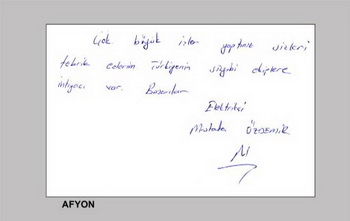 Çok büyük işler yaptınız sizleri
tebrik ederim Türkiyenin sizgibi ekiplere
ihtiyacı var. Başarılar
Elektrikci
Mustafa ÖZDEMİR
AFYON